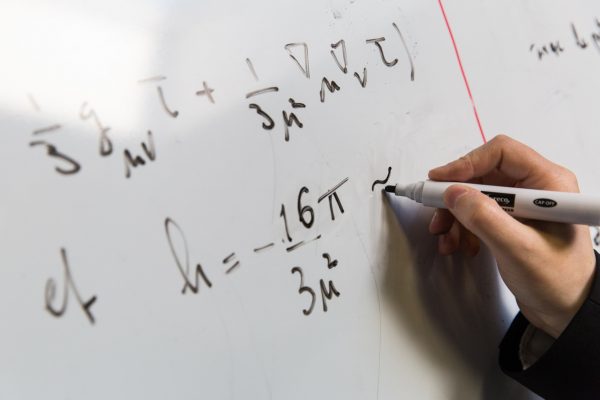 1/3 g_μν τ + 1/3μ² ∇_μ ∇_ν τ)
et h = - 16π/3μ² ~
CAP OFF